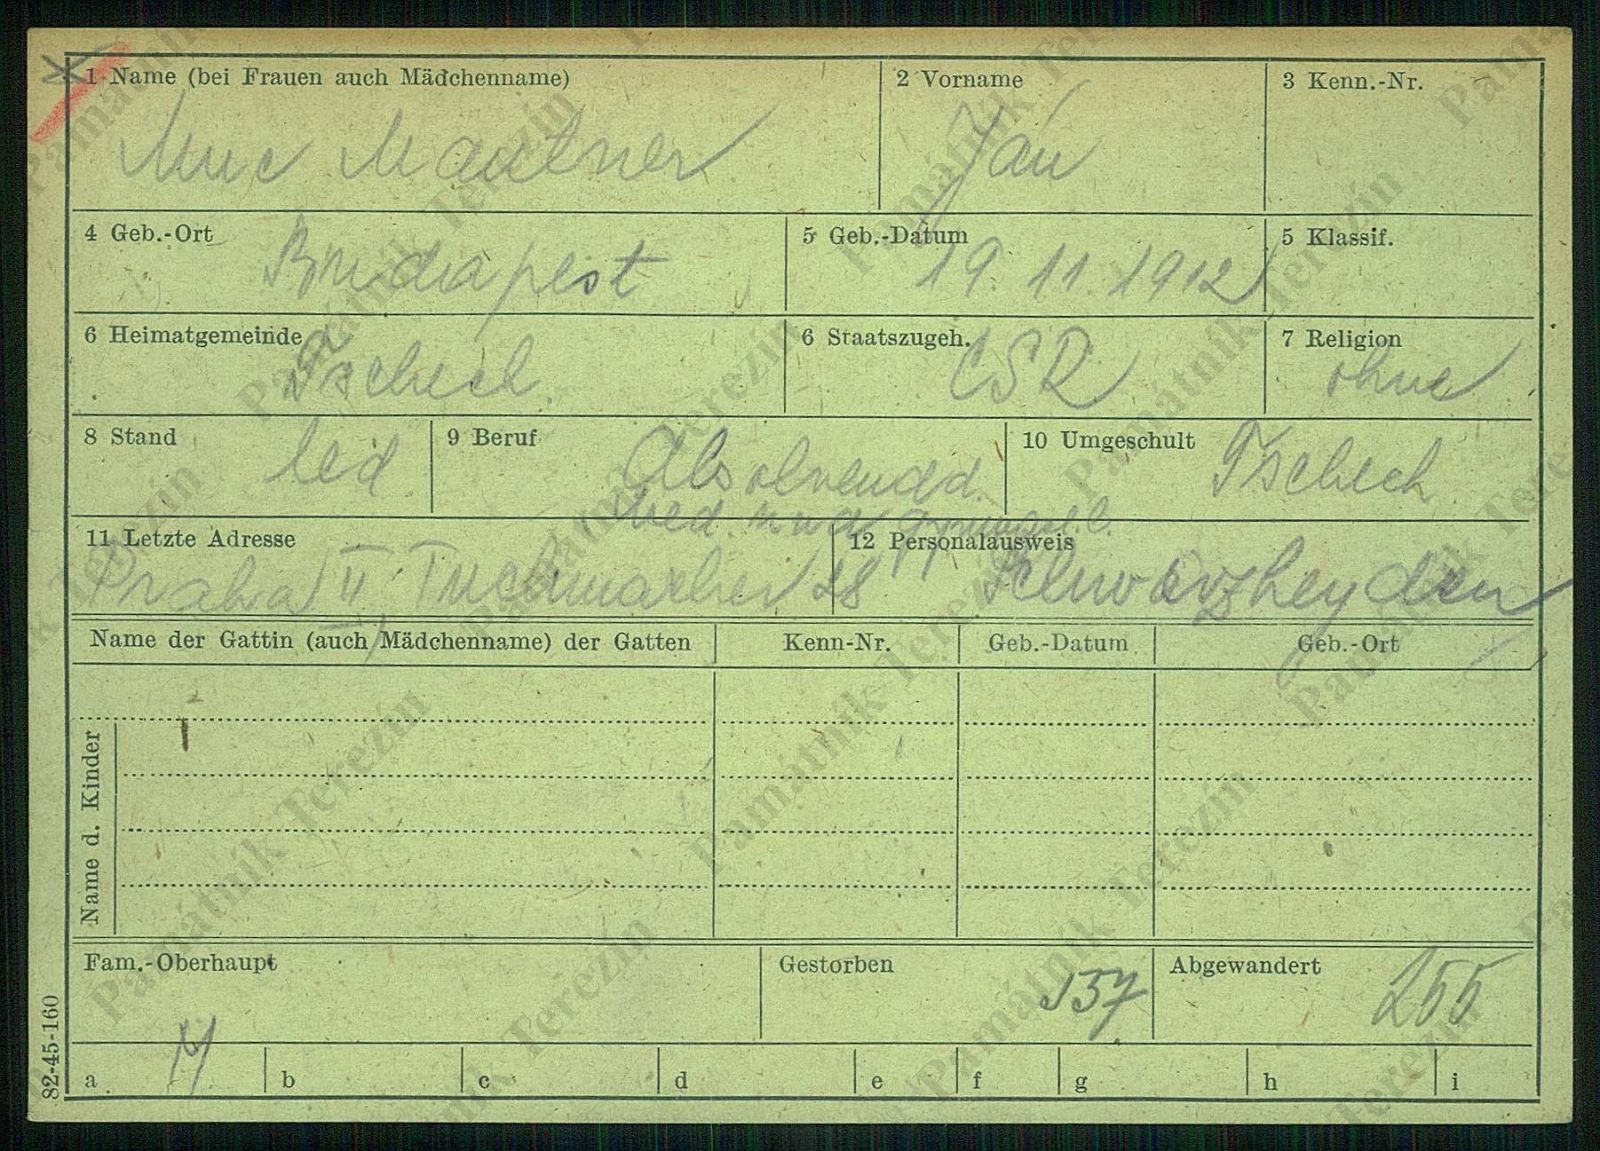 1 Name (bei Frauen auch Mädchenname) 2 Vorname 3 Kenn.-Nr.
Mautner Jan
4 Geb.-Ort 5 Geb.-Datum 5 Klassif.
Budapest 19. 11. 1912
6 Heimatgemeinde 6 Staatszugeh. 7 Religion
Tschech. CSR ohne
8 Stand 9 Beruf 10 Umgeschult
led Absolvend d. Tschech.
med. und
11 Letzte Adresse 12 Personalausweis
Praha II Tuchmacher 28 Schwarzheyden
Name der Gattin (auch Mädchenname) der Gatten Kenn-Nr. Geb.-Datum Geb.-Ort
Name d. Kinder
Fam.-Oberhaupt Gestorben Abgewandert
137 255
a 4 b c d e f g h i
82-45-160
Památník Terezín